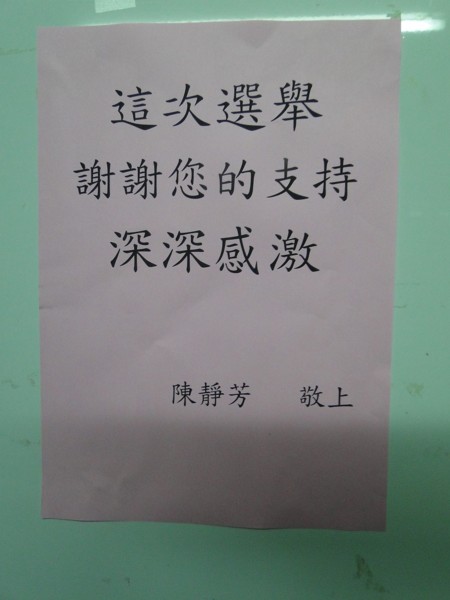 這次選舉
謝謝您的支持
深深感激
陳靜芳 敬上